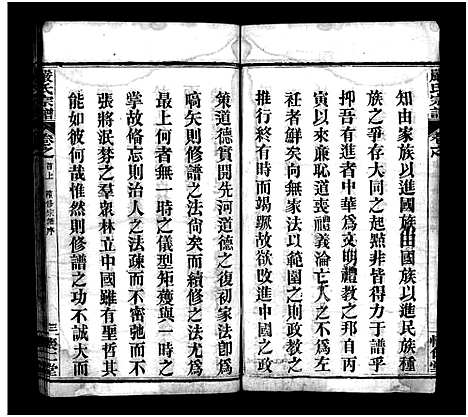 嚴氏宗譜
卷之
知由家族以進國族由國族以進民族種
族之爭存大同之起點非皆得力于譜乎
抑吾有進者中華為文明禮教之邦自丙
寅以來廉恥道喪禮義淪亡人之不為左
社者鮮矣家法以範圍之則政教之
推行終有時而竭蹶故欲改進中國之政
策道德實開先河道德之復初家法卽為
嚆矢則修譜之法尙矣而續修之法尤為
最上何者無一時之儀型矩矱與一時之
掌故備忘則治人之法疎而不密馳而不
張將泯棼之羣衆林立中國雖有聖哲其
能如彼何哉惟然則修譜之功不誠大而
嚴氏宗譜
卷之
首上
序
三
樂仁堂